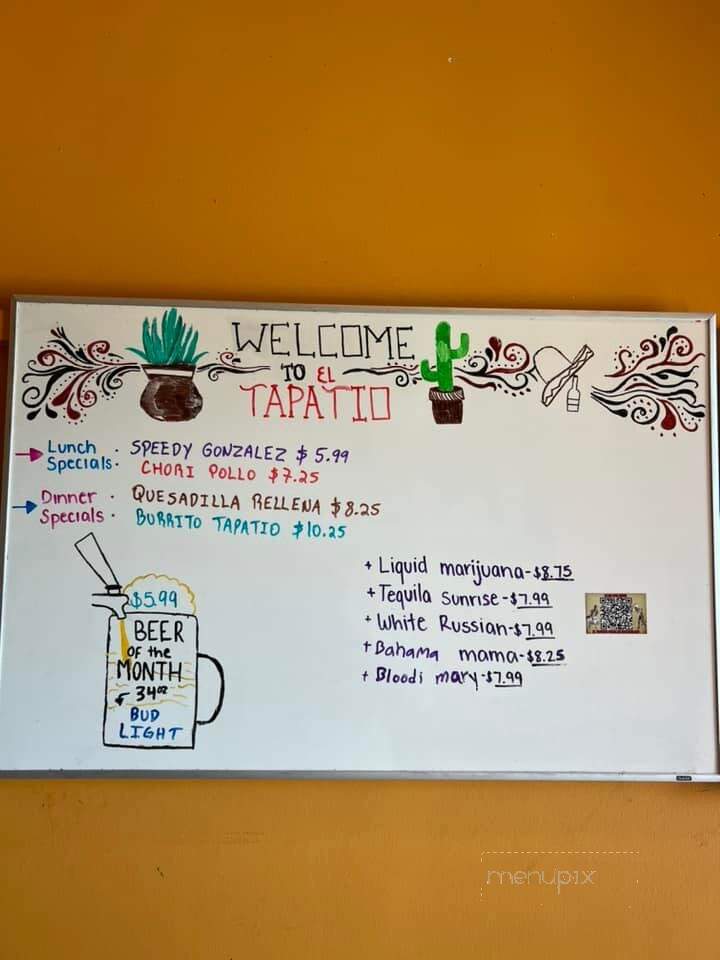 WELCOME
TO EL
TAPATIO
Lunch · SPEEDY GONZALEZ $5.99
Specials· CHORI POLLO $7.25
Dinner · QUESADILLA RELLENA $8.25
Specials· BURRITO TAPATIO $10.25
$5.99
BEER
OF the
MONTH
34oz
BUD
LIGHT
+ Liquid marijuana-$8.75
+ Tequila Sunrise-$7.99
+ White Russian-$7.99
+ Bahama mama-$8.25
+ Bloodi mary-$7.99
menupix